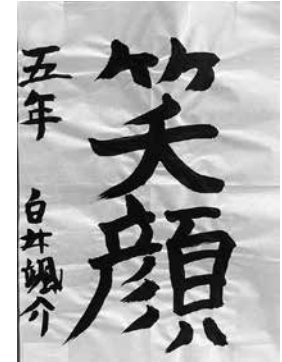 笑顔
五年 白井颯介